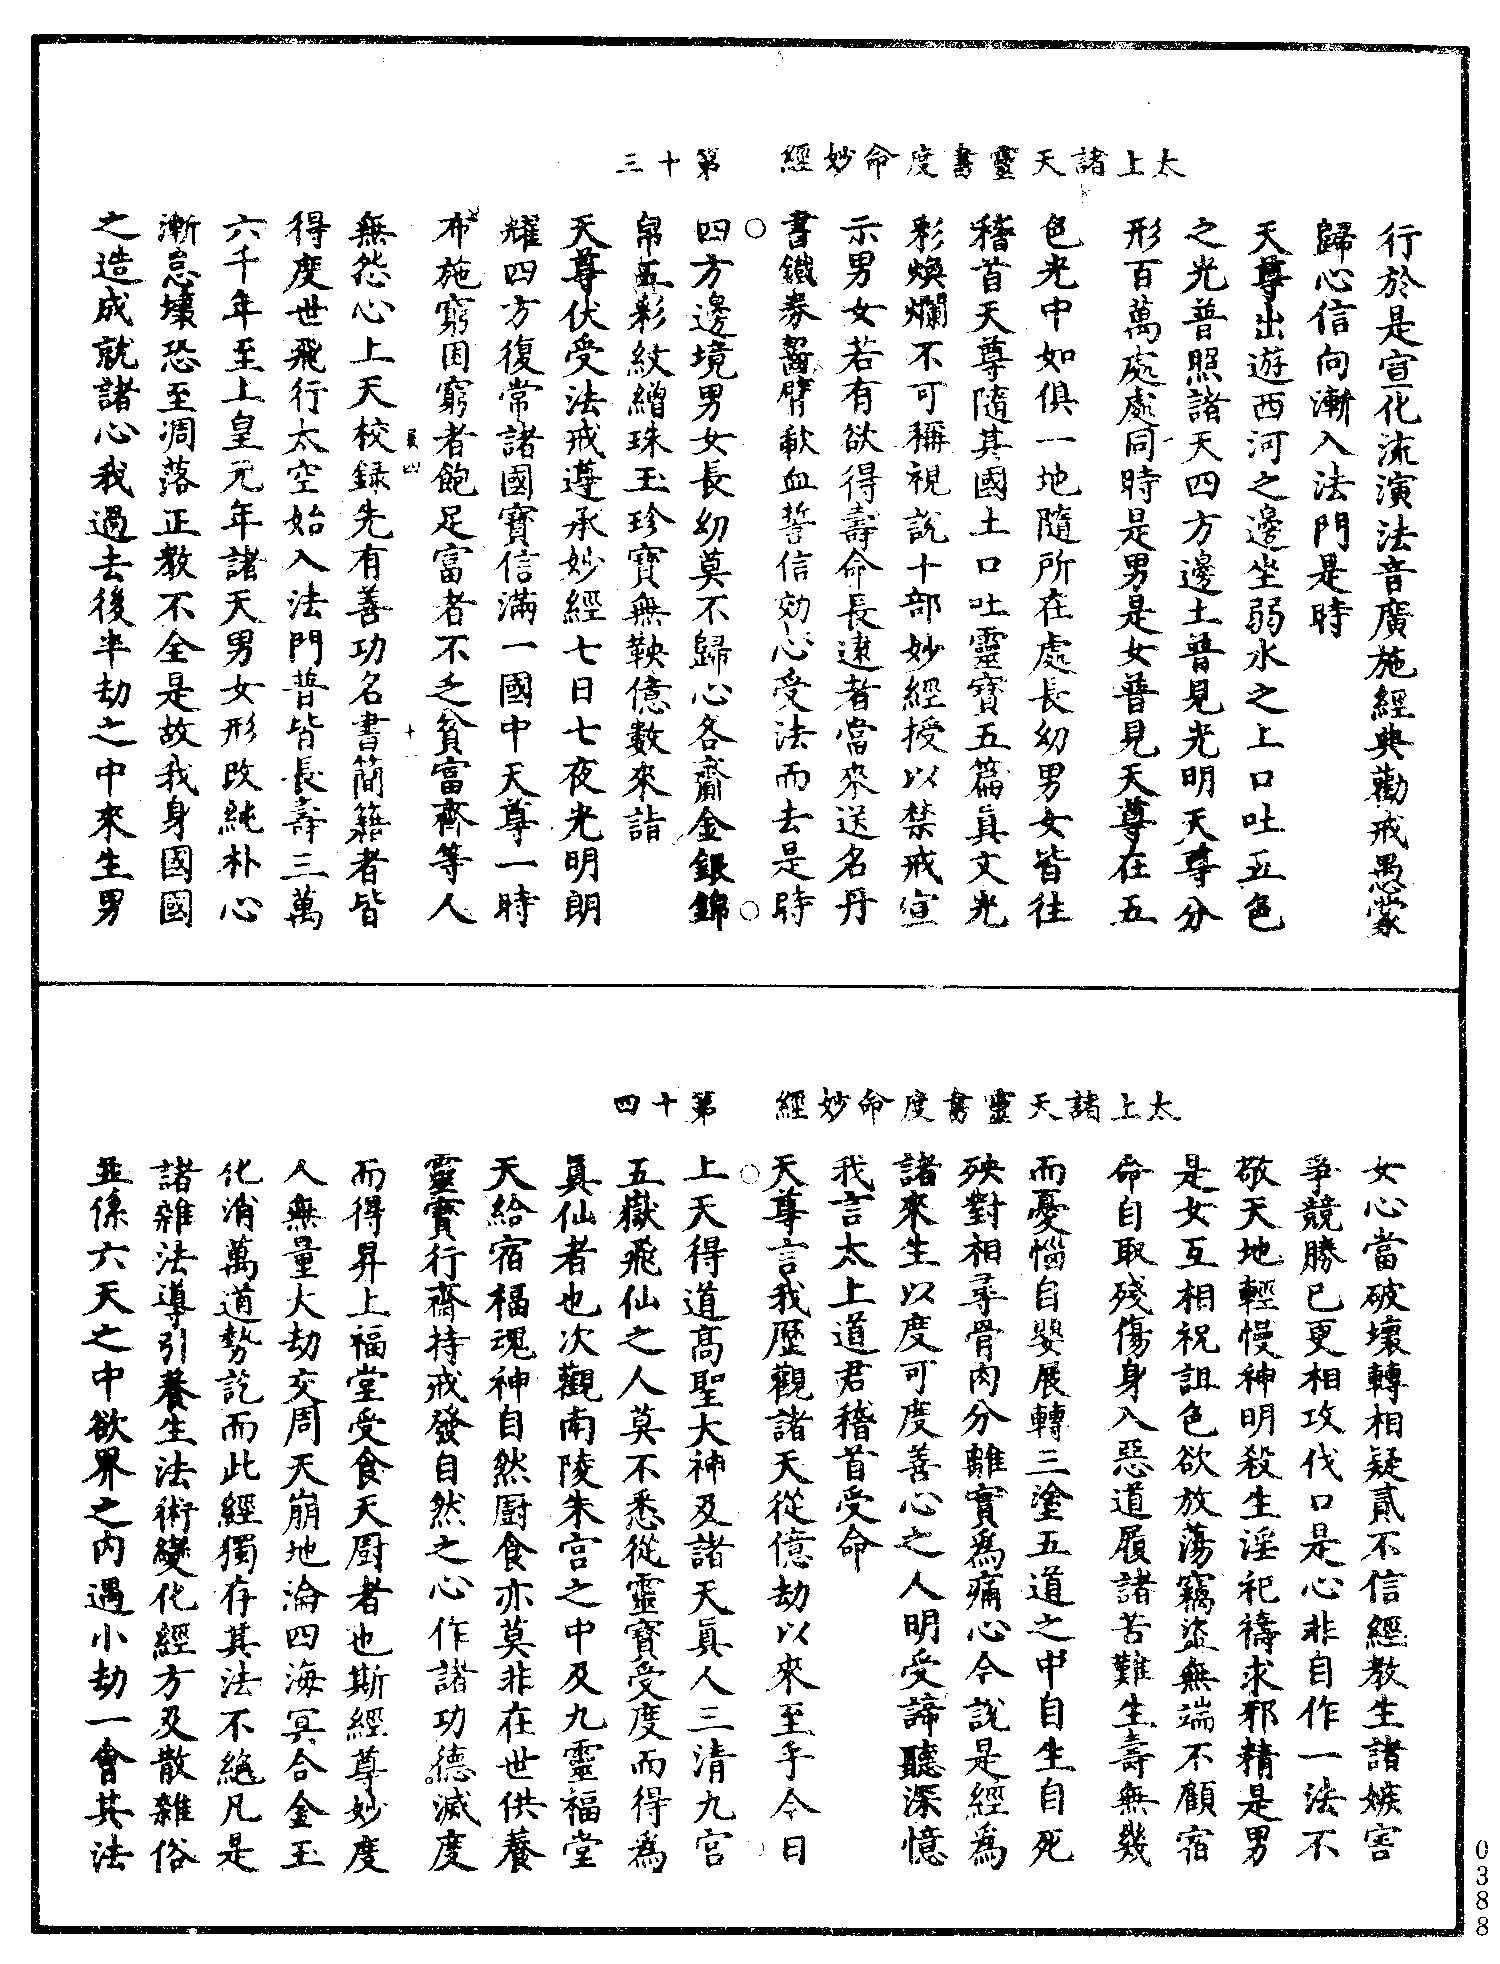 太上諸天靈書度命妙經　第十三
行於是宣化流演法音廣施經典勸戒愚蒙
歸心信向漸入法門是時
天尊出遊西河之邊坐弱水之上口吐五色
之光普照諸天四方邊土普見光明天尊分
形百萬處處同時是男是女普見天尊在五
色光中如俱一地隨所在處長幼男女皆往
稽首天尊隨其國土口吐靈寶五篇真文光
彩煥爛不可稱視說十部妙經授以禁戒宣
示男女若有欲得壽命長遠者當來送名丹
書鐵券齧臂歃血誓信効心受法而去是時
四方邊境男女長幼莫不歸心各齎金銀錦
帛五彩紋繒珠玉珍寶無鞅億數來詣
天尊伏受法戒遵承妙經七日七夜光明朗
耀四方復常諸國寶信滿一國中天尊一時
布施窮困窮者飽足富者不乏貧富齊等人
無怨心上天校録先有善功名書簡籍者皆
得度世飛行太空始入法門普皆長壽三萬
六千年至上皇元年諸天男女形改純朴心
漸怠壞恐至凋落正教不全是故我身國國
之造成就諸心我過去後半劫之中來生男
太上諸天靈書度命妙經　第十四
女心當破壞轉相疑貳不信經教生諸嫉害
爭競勝已更相攻伐口是心非自作一法不
敬天地輕慢神明殺生淫祀禱求邪精是男
是女互相祝詛色欲放蕩竊盜無端不顧宿
命自取殘傷身入惡道履諸苦難生壽無幾
而憂惱自嬰展轉三塗五道之中自生自死
殃對相尋骨肉分離實為痛心今說是經為
諸來生以度可度善心之人明受諦聽深憶
我言太上道君稽首受命
天尊言我歷觀諸天從億劫以來至乎今日
上天得道高聖大神及諸天真人三清九宮
五嶽飛仙之人莫不悉從靈寶受度而得為
真仙者也次觀南陵朱宮之中及九靈福堂
天給宿福魂神自然廚食亦莫非在世供養
靈寶行齋持戒發自然之心作諸功德滅度
而得昇上福堂受食天廚者也斯經尊妙度
人無量大劫交周天崩地淪四海冥合金玉
化消萬道勢訖而此經獨存其法不絕凡是
諸雜法導引養生法術變化經方及散雜俗
並係六天之中欲界之內遇小劫一會其法
0388